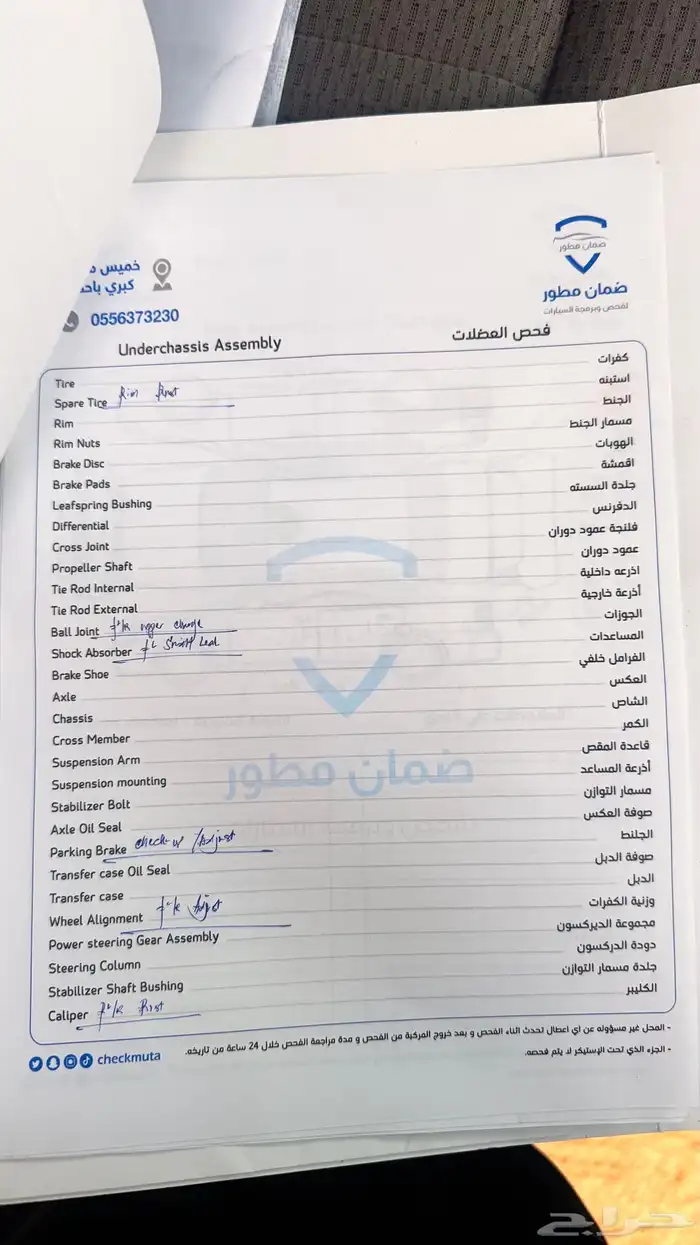 ضمان مطور
ضمان مطور
لفحص وبرمجة السيارات
خميس
كبري
0556373230
Underchassis Assembly فحص العضلات
Tire كفرات
Spare Tire Rim Rust استبنه
Rim الجنط
Rim Nuts مسمار الجنط
Brake Disc الهوبات
Brake Pads اقمشة
Leafspring Bushing جلدة السسته
Differential الدفرنس
Cross Joint فلنجة عمود دوران
Propeller Shaft عمود دوران
Tie Rod Internal اذرعه داخلية
Tie Rod External أذرعة خارجية
Ball Joint upper change الجوزات
Shock Absorber Leak المساعدات
Brake Shoe الفرامل خلفي
Axle العكس
Chassis الشاص
Cross Member الكمر
Suspension Arm قاعدة المقص
Suspension mounting أذرعة المساعد
Stabilizer Bolt مسمار التوازن
Axle Oil Seal صوفة العكس
Parking Brake check up / Adjust الجلنط
Transfer case Oil Seal صوفة الدبل
Transfer case الدبل
Wheel Alignment وزنية الكفرات
Power steering Gear Assembly مجموعة الديركسون
Steering Column دودة الدركسون
Stabilizer Shaft Bushing جلدة مسمار التوازن
Caliper Rust الكليبر
ضمان مطور
- المحل غير مسؤوله عن اي اعطال تحدث اثناء الفحص و بعد خروج المركبة من الفحص و مدة مراجعة الفحص خلال 24 ساعة من تاريخه.
- الجزء الذي تحت الإستيكر لا يتم فحصه.
checkmuta
حراج